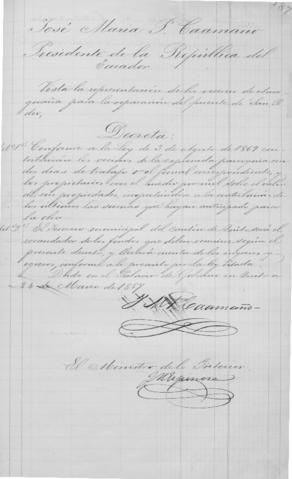 José Maria P. Caamaño
Presidente de la República del
Ecuador
Vista la representacion de los vecinos de
para la reparacion del puente de San Pe-
dro,
Decreta:
Art° 1° Conforme a la Ley de 3 de Agosto de 1869 con-
los vecinos de la parroquia con
dos dias de trabajo o el jornal correspondiente, y
los propietarios con el por mil sobre el valor
de sus propiedades,
las sumas que hayan anticipado para
la obra
Art° 2° El Tesorero municipal del Canton de Quito será el
recaudador de los fondos que deban según el
presente decreto, y
conforme a lo por la ley
Dado en el Palacio de Gobierno en Quito a
24 de Marzo de 1887.
J. M. P. Caamaño
El Ministro de lo Interior
J. M. Espinosa